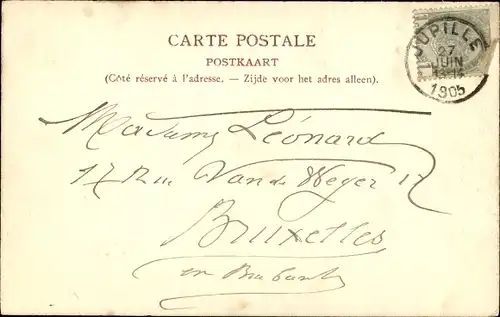 CARTE POSTALE
POSTKAART
(Côté réservé à l'adresse. — Zijde voor het adres alleen).
JUPILLE
27
JUIN
1905
Madame Léonard
17 Rue Van de Weyer 17
Bruxelles
en Brabant